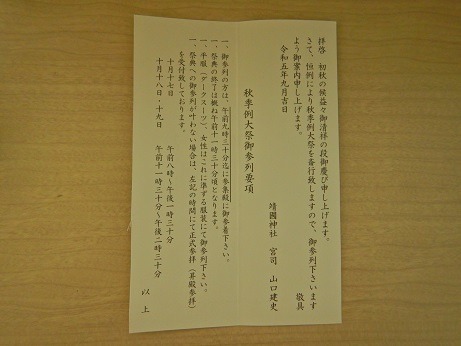 拝啓　初秋の候益々御清祥の段御慶び申し上げます。
さて、恒例により秋季例大祭を斎行致しますので、御参列下さいます
よう御案内申し上げます。
敬具
令和五年九月吉日
靖國神社　宮司　山口建史
秋季例大祭御参列要項
一、御参列の方は、午前九時三十分迄に参集殿に御参着下さい。
一、祭典の終了は概ね午前十一時三十分頃となります。
一、平服（ダークスーツ）、女性はこれに準ずる服装にて御参列下さい。
一、祭典への御参列が叶わない場合は、左記の時間にて正式参拝（昇殿参拝）
を受付致しております。
十月十七日　午前八時～午後一時三十分
十月十八日・十九日　午前十一時三十分～午後二時三十分
以上